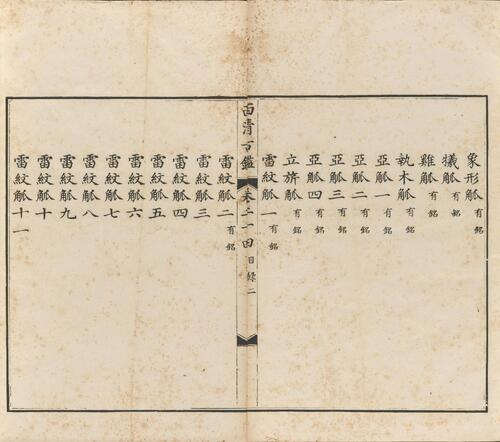 象形觚有銘
犧觚有銘
雞觚有銘
執木觚有銘
亞觚一有銘
亞觚二有銘
亞觚三有銘
亞觚四有銘
立旂觚有銘
雷紋觚一有銘
西清古鑑 卷二十四目錄 二
雷紋觚二有銘
雷紋觚三
雷紋觚四
雷紋觚五
雷紋觚六
雷紋觚七
雷紋觚八
雷紋觚九
雷紋觚十
雷紋觚十一